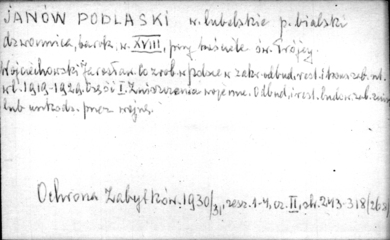 JANÓW PODLASKI w. lubelskie p. bialski
dzwonnica, barok, w. XVIII, przy kościele św. Trójcy.
Wojciechowski Jarosław. Co zrob. w Polsce w zakr. odbud., rest. i konserw. zab. szt.
w l. 1919-1929. Część I. Zniszczenia wojenne. Odbud. i rest. budow. zab. znisz.
lub uszkodz. przez wojnę.
Ochrona Zabytków. 1930/31, zesz. 1-4, cz. II, str. 243-318/263/